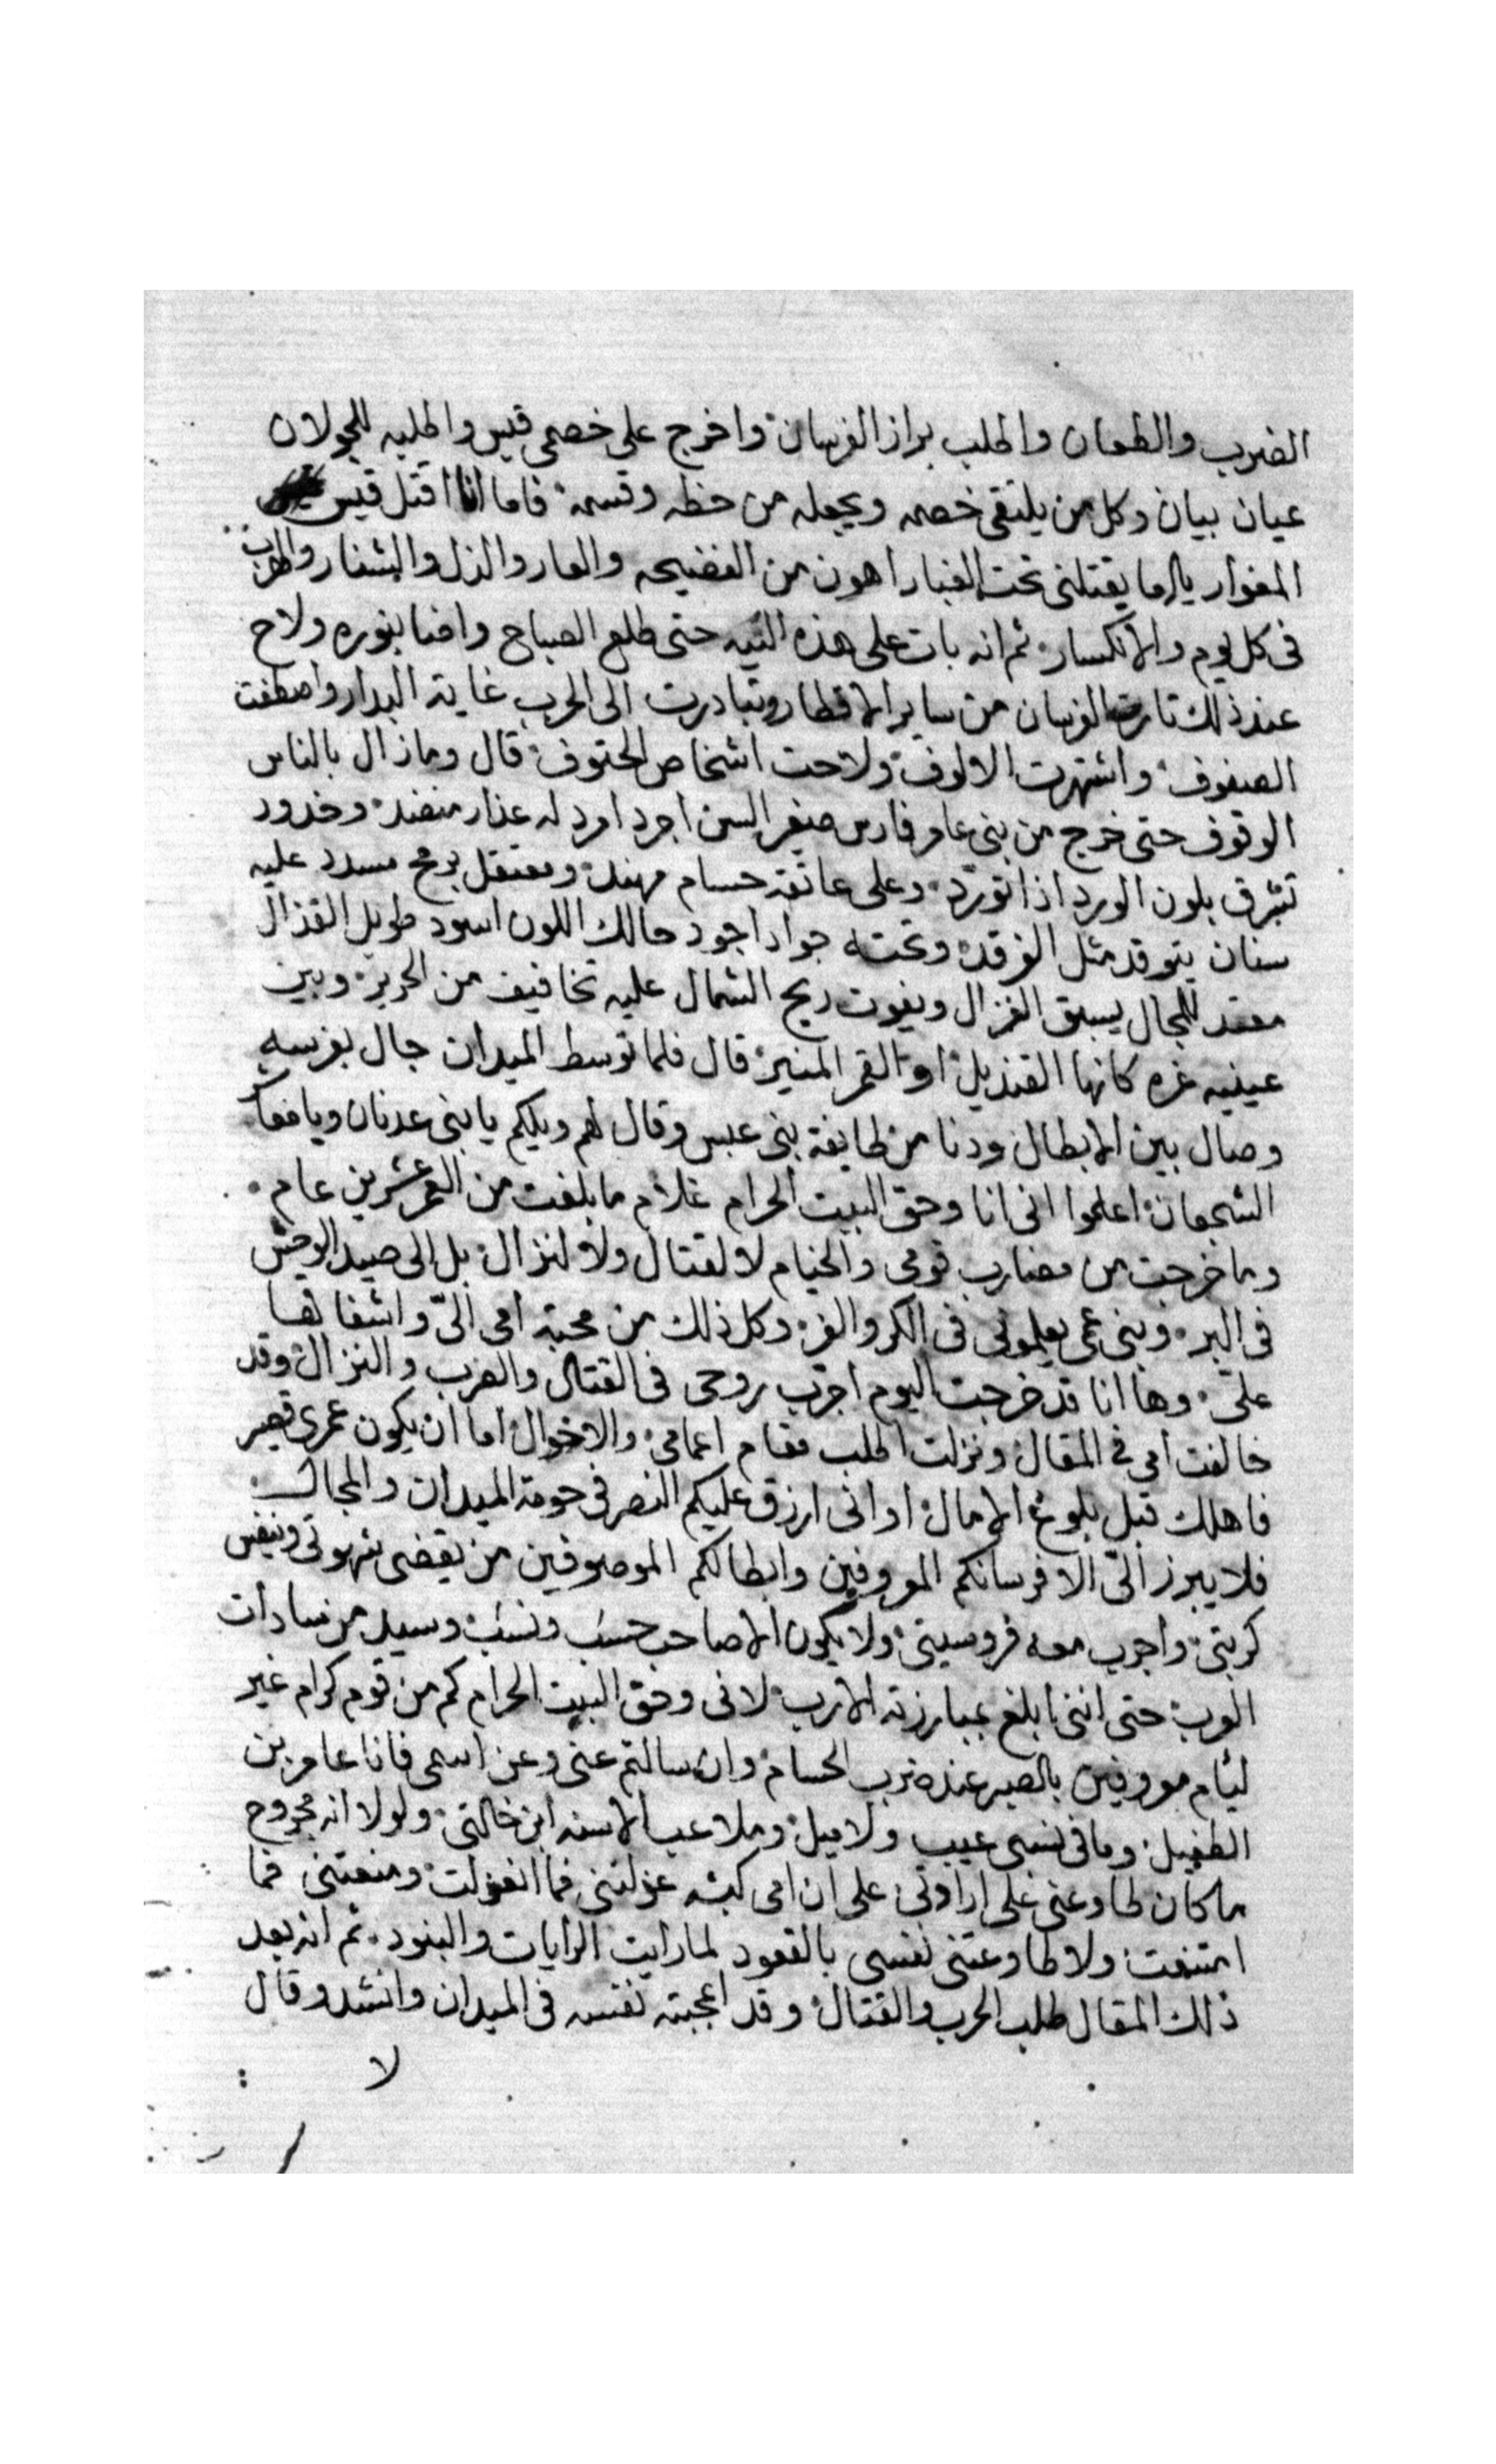 الضرب والطعان واطلب براز الفرسان واخرج على خصمى قيس واطلبه للجولان
عيان بيان وكل من يلتقى خصمه ويجعله من حظه وقسمه فاما انا اقتل قيس
المغوار يا اما يقتلنى تحت الغبار اهون من الفضيحه والعار والذل والشنار والهرب
فى كل يوم والانكسار ثم انه بات على هذه النيه حتى طلع الصباح واضا بنوره ولاح
عند ذلك تارت الفرسان من ساير الاقطار وتبادرت الى الحرب غاية البدار واصطفت
الصفوف واشتهرت الالوف ولاحت اشخاص الحتوف قال وما زال بالناس
الوقوف حتى خرج من بنى عامر فارس صغير السن اجرد امرد له عذار منضد وخدود
تشرق بلون الورد اذا تورد وعلى عاتقه حسام مهند ومعتقل برمح مسدد عليه
سنان يتوقد مثل الفرقد وتحته جواد اجود حالك اللون اسود طويل القذال
معتد للمجال يسبق الغزال ويفوت ريح الشمال عليه تخافيف من الحرير وبين
عينيه غره كانها القنديل او القمر المنير قال فلما توسط الميدان جال بفرسه
وصال بين الابطال ودنا من طايفة بنى عبس وقال لهم ويلكم يا بنى عدنان ويا معاشر
الشجعان اعلموا انى انا وحق البيت الحرام غلام ما بلغت من العمر عشرين عام
وما خرجت من مضارب قومى والخيام لا لقتال ولا لنزال بل الى صيد الوحش
فى البر وبنى عمى يعلمونى فى الكر والفر وكل ذلك من محبة امى الىّ واشفاقها
علىّ وها انا قد خرجت اليوم اجرب روحى فى القتال والضرب والنزال وقد
خالفت امى فى المقال ونزلت اطلب مقام اعمامى والاخوال اما ان يكون عمرى قصير
فاهلك قبل بلوغ الامال او انى ارزق عليكم النصر فى حومة الميدان والمجال
فلا يبرز الىّ الا فرسانكم المعروفين وابطالكم الموصوفين من يقضى شهوتى وينفس
كربتى واجرب معه فروسيتى ولا يكون الا صاحب حسب ونسب وسيد من سادات
العرب حتى اننى ابلغ بمبارزته الارب لانى وحق البيت الحرام كم من قوم كرام غير
ليام معروفين بالصبر عند ضرب الحسام وان سالتم عنى وعن اسمى فانا عامر بن
الطفيل وما فى نسبى عيب ولا ميل وملاعب الاسنه ابن خالتى ولولا انه مجروح
ما كان طاوعنى على ارادتى على ان امى كبشه عزلتنى فما انعزلت ومنعتنى فما
امتنعت ولا طاوعتنى نفسى بالقعود لما رايت الرايات والبنود ثم انه بعد
ذلك المقال طلب الحرب والقتال وقد اعجبته نفسه فى الميدان وانشد وقال
لا